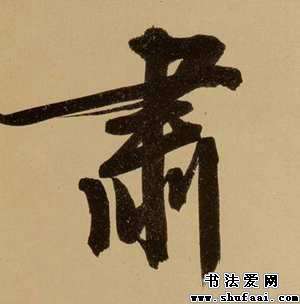 肅
书法爱网
www.shufaai.com